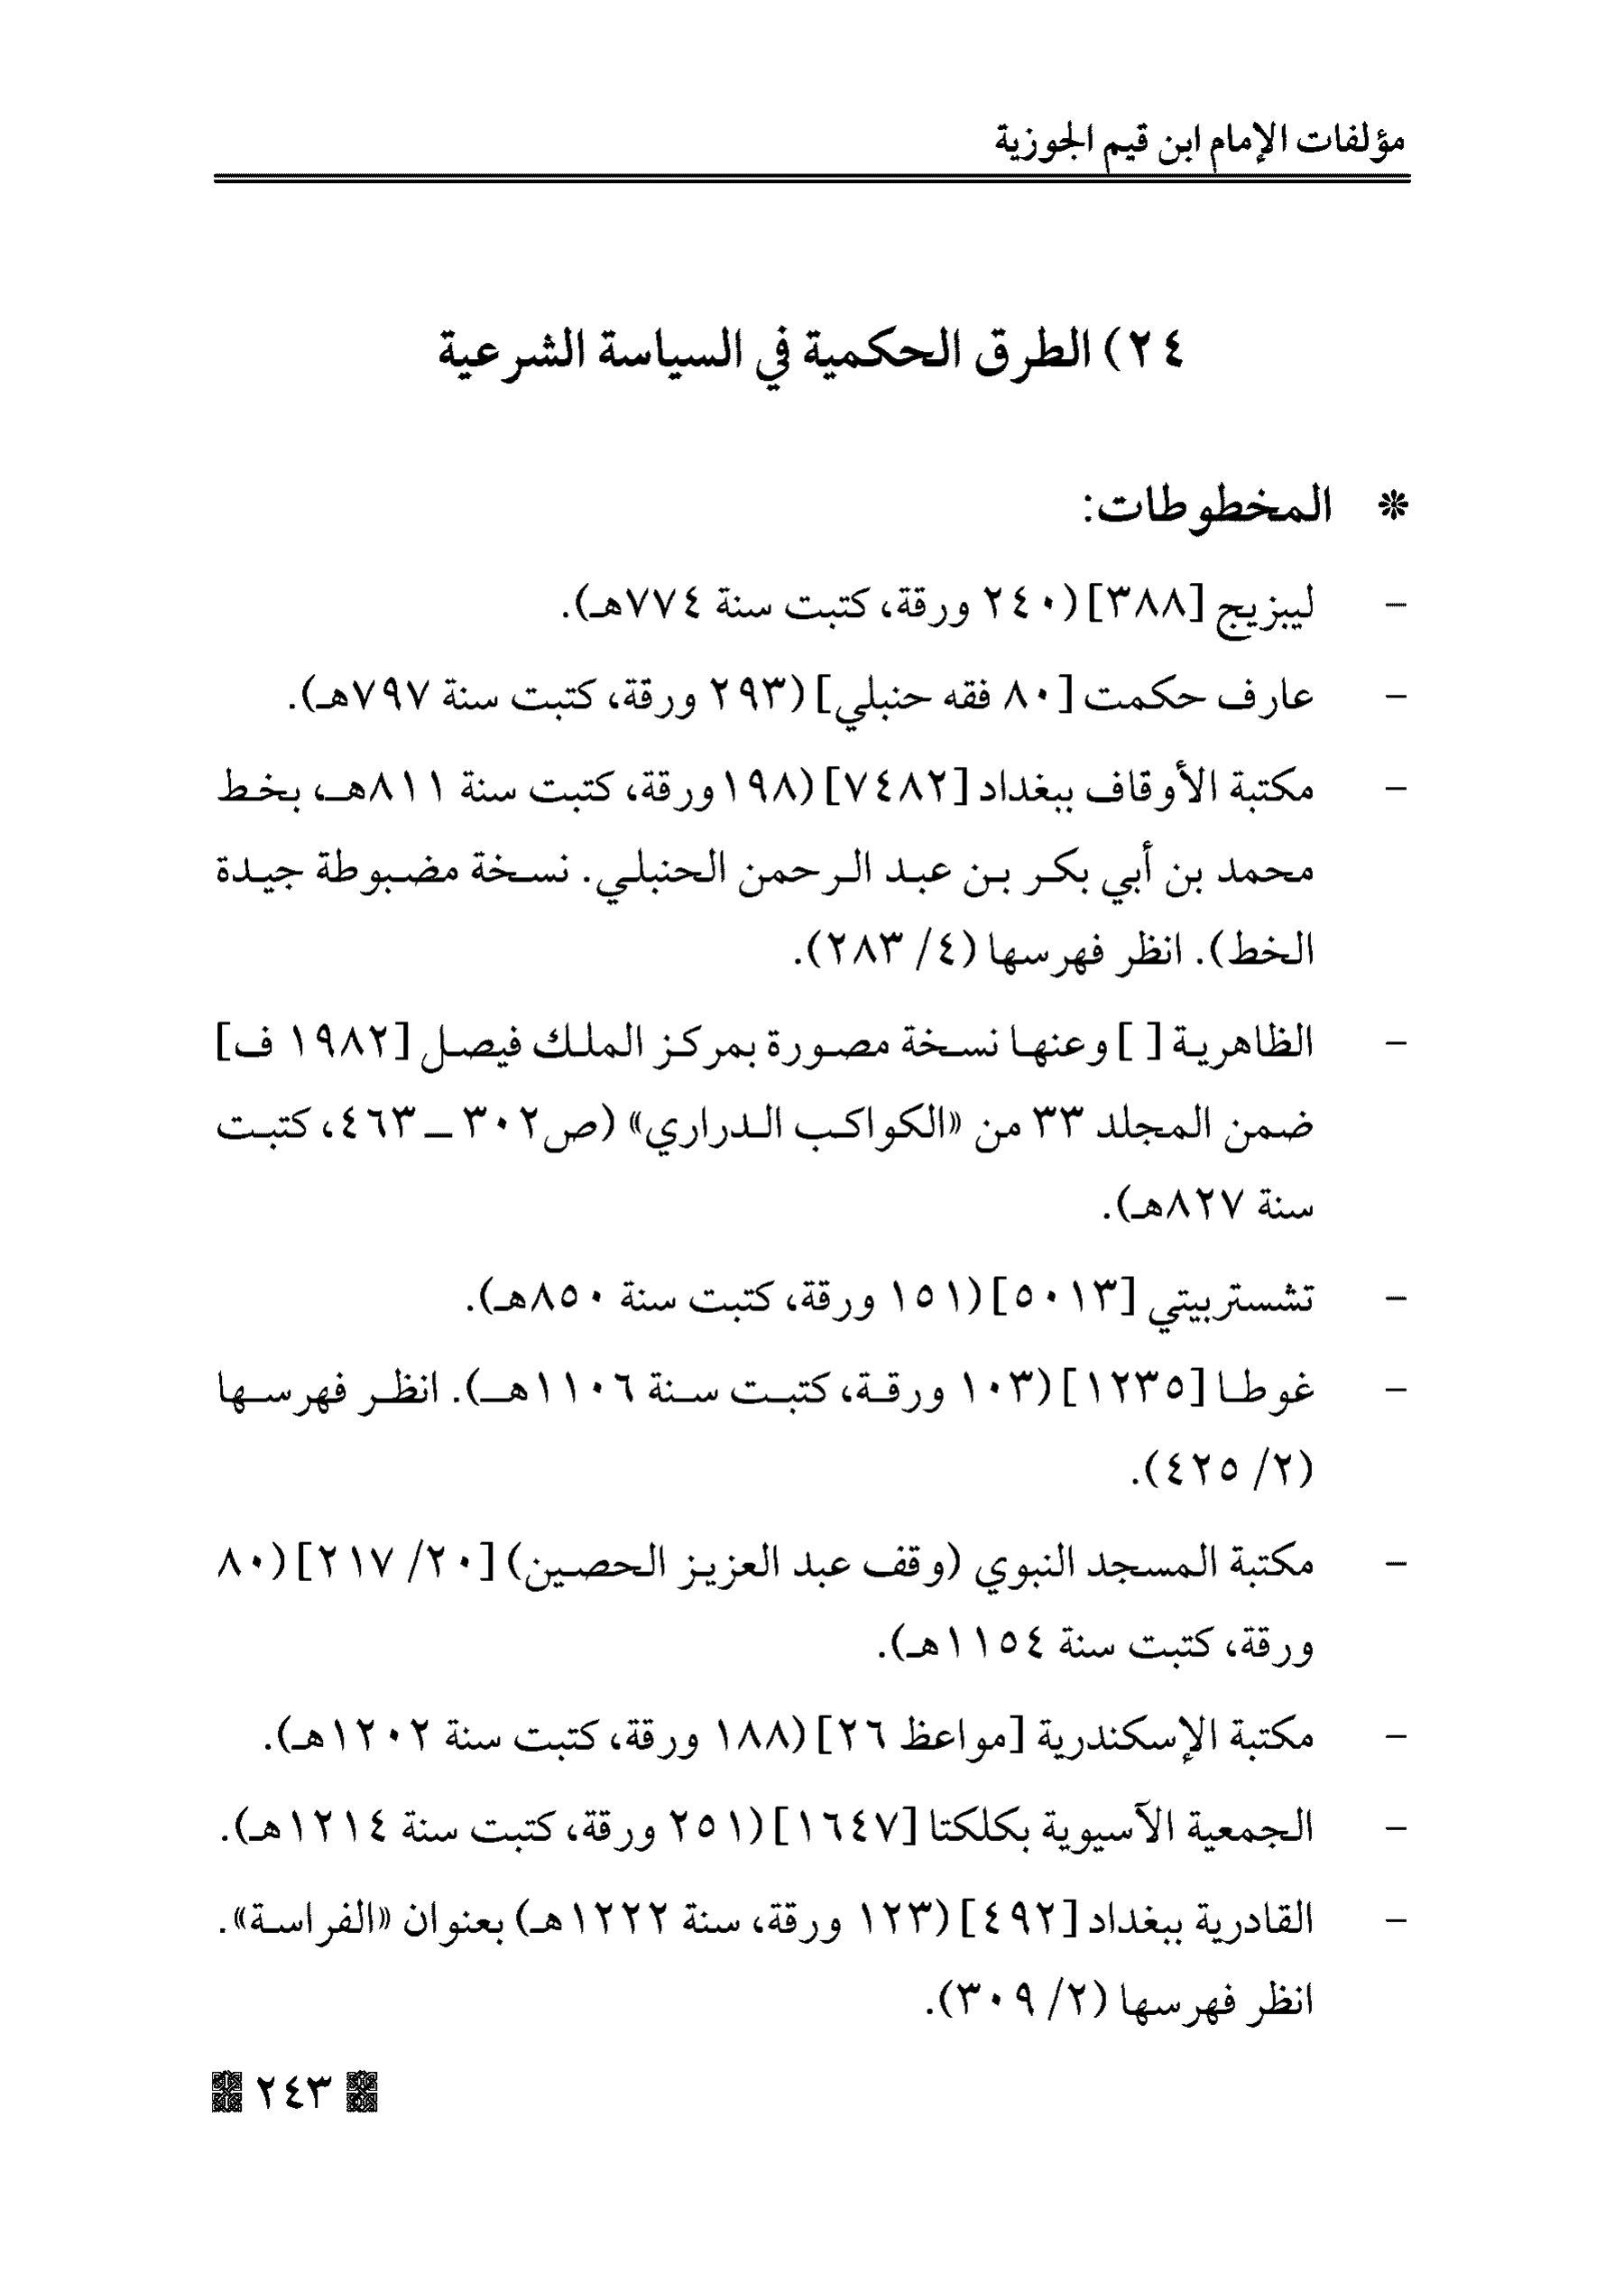 مؤلفات الإمام ابن قيم الجوزية
٢٤) الطرق الحكمية في السياسة الشرعية
* المخطوطات:
- ليبزيج [٣٨٨] (٢٤٠ ورقة، كتبت سنة ٧٧٤هـ).
- عارف حكمت [٨٠ فقه حنبلي] (٢٩٣ ورقة، كتبت سنة ٧٩٧هـ).
- مكتبة الأوقاف ببغداد [٧٤٨٢] (١٩٨ورقة، كتبت سنة ٨١١هـ، بخط
محمد بن أبي بكر بن عبد الرحمن الحنبلي. نسخة مضبوطة جيدة
الخط). انظر فهرسها (٤/ ٢٨٣).
- الظاهرية [ ] وعنها نسخة مصورة بمركز الملك فيصل [١٩٨٢ ف]
ضمن المجلد ٣٣ من «الكواكب الدراري» (ص٣٠٢ ـ ٤٦٣، كتبت
سنة ٨٢٧هـ).
- تشستربيتي [٥٠١٣] (١٥١ ورقة، كتبت سنة ٨٥٠هـ).
- غوطا [١٢٣٥] (١٠٣ ورقة، كتبت سنة ١١٠٦هـ). انظر فهرسها
(٢/ ٤٢٥).
- مكتبة المسجد النبوي (وقف عبد العزيز الحصين) [٢٠/ ٢١٧] (٨٠
ورقة، كتبت سنة ١١٥٤هـ).
- مكتبة الإسكندرية [مواعظ ٢٦] (١٨٨ ورقة، كتبت سنة ١٢٠٢هـ).
- الجمعية الآسيوية بكلكتا [١٦٤٧] (٢٥١ ورقة، كتبت سنة ١٢١٤هـ).
- القادرية ببغداد [٤٩٢] (١٢٣ ورقة، سنة ١٢٢٢هـ) بعنوان «الفراسة».
انظر فهرسها (٢/ ٣٠٩).
٢٤٣